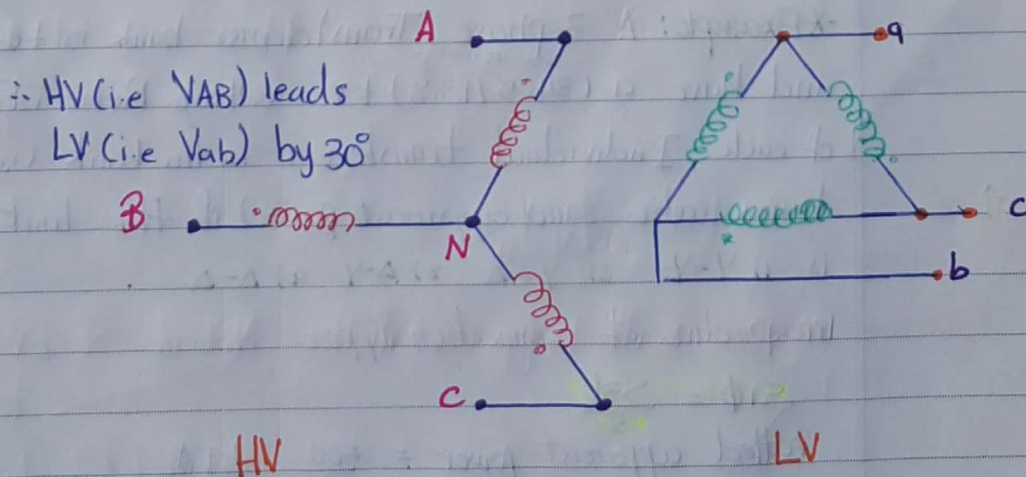 A
a
∴ HV (i.e VAB) leads
LV (i.e Vab) by 30°
B
N
c
b
C
HV
LV